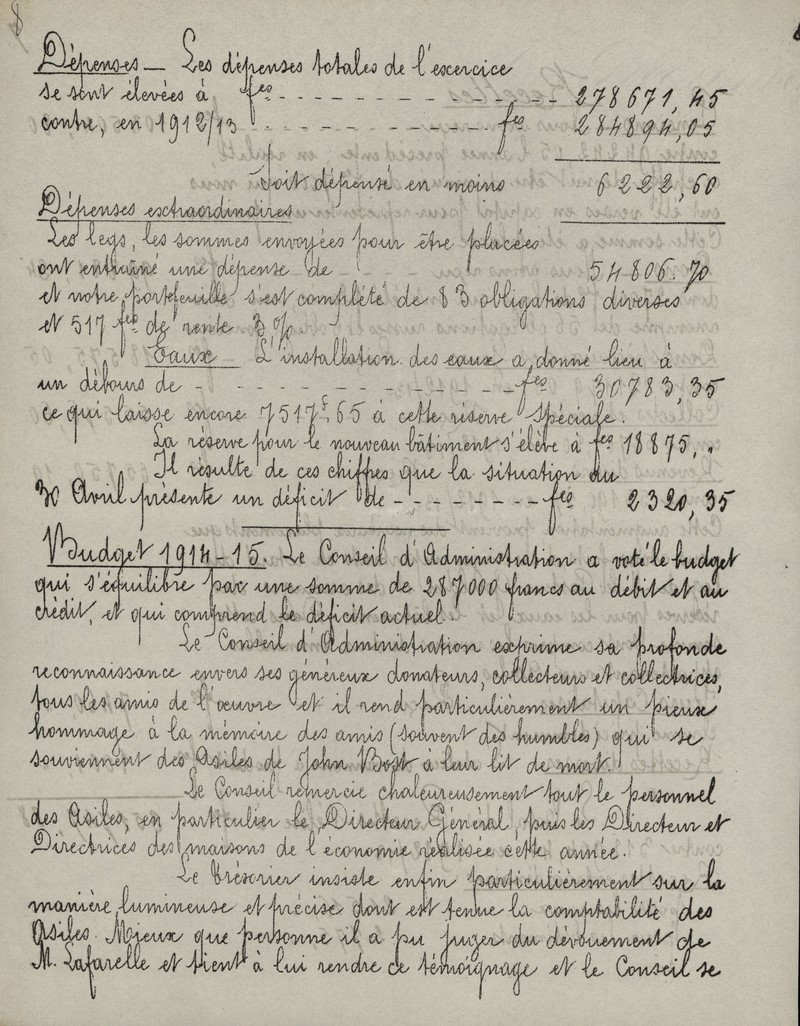 8
Dépenses — Les dépenses totales de l'excercice
se sont élevées à fcs - - - - - - - - - - - - - - 278671,45
contre, en 1912/13 - - - - - - - - - - - fcs 284894,05
Soit dépensé en moins 6222,60
Dépenses extraordinaires
Les legs, les sommes envoyées pour être placées
ont entraîné une dépense de 54806.70
et notre portefeuille s'est complété de 83 obligations diverses
et 517 fcs de rente 3%.
Eaux L'installation des eaux a donné lieu à
un débours de - - - - - - - - - - - - - fcs 30783,35
ce qui laisse encore 7517f,65 à cette réserve spéciale.
La réserve pour le nouveau bâtiment s'élève à fcs 18875,"
Il résulte de ces chiffres que la situation au
30 Avril présente un déficit de - - - - - - - fcs 2320,35
Budget 1914-15. Le Conseil d'Administration a voté le budget
qui s'équilibre par une somme de 287000 francs au débit et au
crédit, et qui comprend le déficit actuel.
Le Conseil d'Administration exprime sa profonde
reconnaissance envers ses généreux donateurs, collecteurs et collectrices,
tous les amis de l'œuvre et il rend particulièrement un pieux
hommage à la mémoire des amis (souvent des humbles) qui se
souviennent des Asiles de John Bost à leur lit de mort.
Le Conseil remercie chaleureusement tout le personnel
des Asiles, en particulier le Directeur Général, puis les Directeur et
Directrices des maisons de l'économie réalisée cette année.
Le Trésorier insiste enfin particulièrement sur la
manière lumineuse et précise dont est tenue la comptabilité des
Asiles. Mieux que personne il a pu juger du dévouement de
M. Lafarelle et tient à lui rendre ce témoignage et le Conseil se